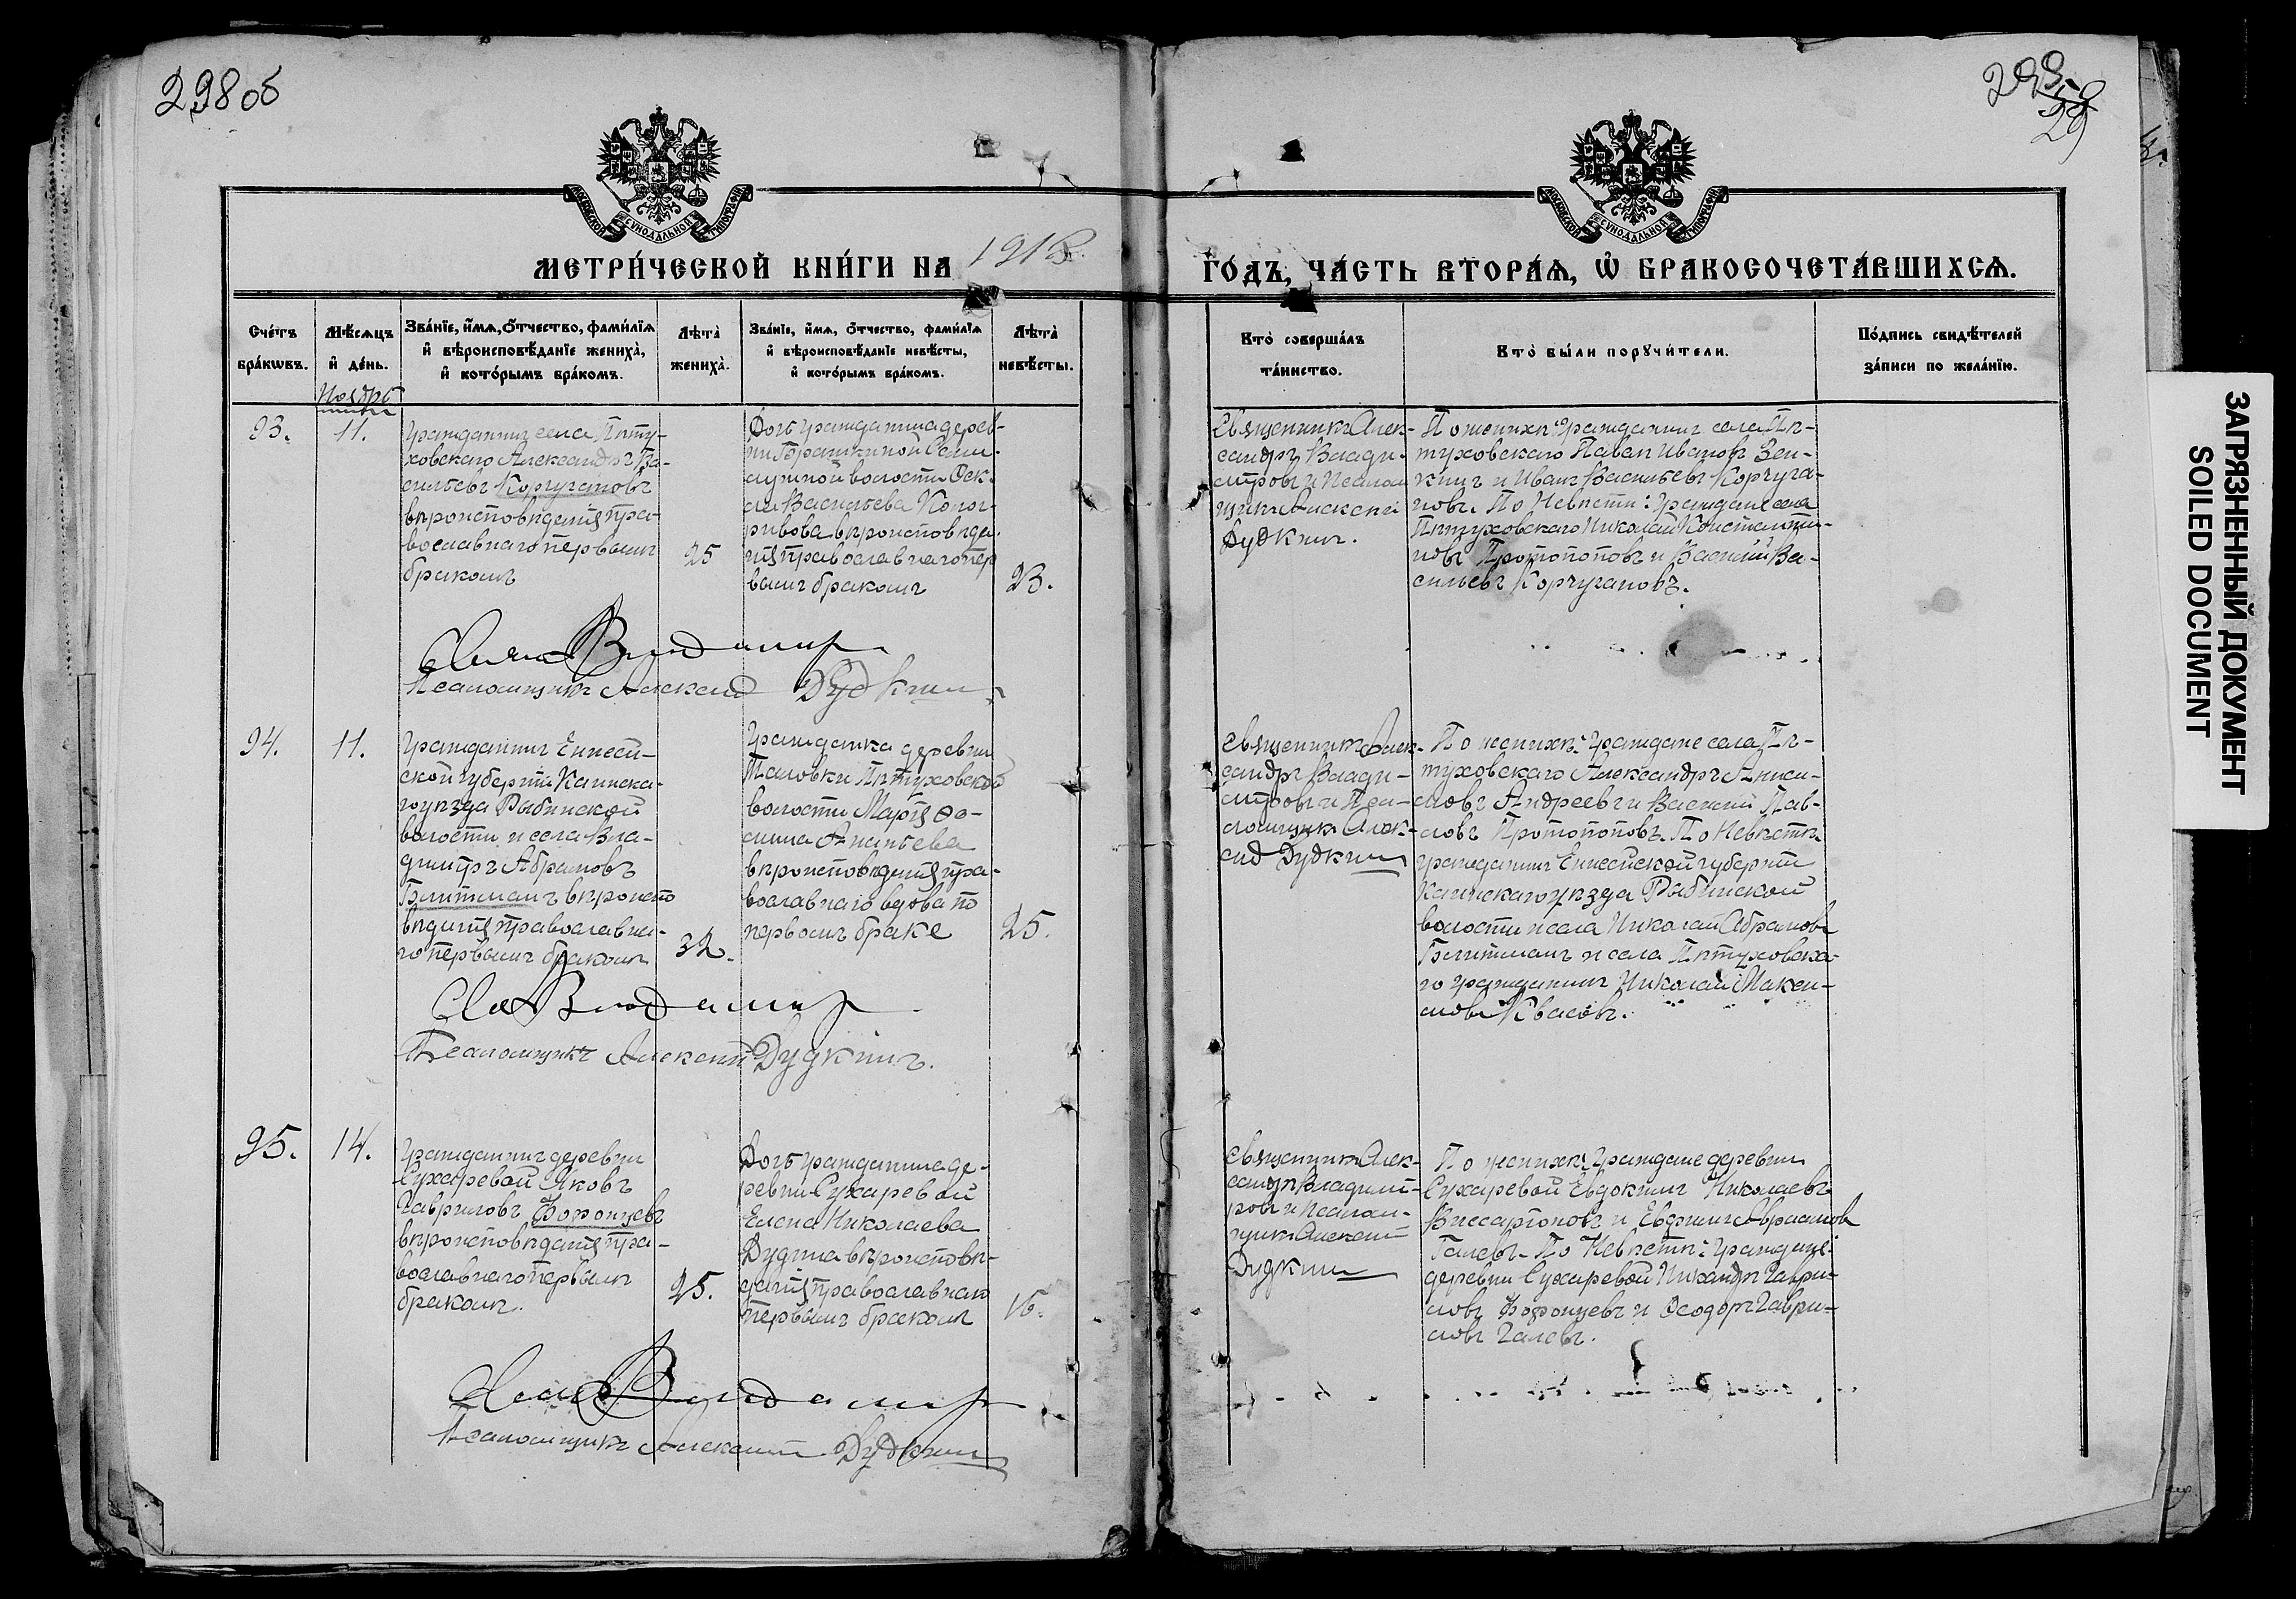 298об
299
МОСКОВСКОЙ СѴНОДАЛЬНОЙ ТИПОГРАФІИ
МОСКОВСКОЙ СѴНОДАЛЬНОЙ ТИПОГРАФІИ
МЕТРИ́ЧЕСКОЙ КНИ́ГИ НА 1918
ГО́ДЪ, ЧА́СТЬ ВТОРА́Ѧ, Ѽ БРАКОСОЧЕТА́ВШИХСѦ.
Сче́тъ
бра́кѡвъ.
Мѣ́сѧцъ
и҆ де́нь.
Зва́нїе, и҆́мѧ, ѻ҆́тчество, фами́лїѧ
и҆ вѣроисповѣ́данїе жениха̀,
и҆ кото́рымъ бра́комъ.
Лѣ́та
жениха̀.
Зва́нїе, и҆́мѧ, ѻ҆́тчество, фами́лїѧ
и҆ вѣроисповѣ́данїе невѣ́сты,
и҆ кото́рымъ бра́комъ.
Лѣ́та
невѣ́сты.
Кто̀ соверша́лъ
та́инство.
Кто̀ бы́ли порꙋчи́тели.
По́дпись свидѣ́телей
за́писи по жела́нїю.
Ноябрь
93.
11.
Гражданинъ села Пѣту-
ховскаго Александръ Ва-
сильевъ Корчугановъ
вѣроисповѣданія пра-
вославнаго первымъ
бракомъ
25
Дочь гражданина дерев-
волости Фек-
ла Васильева
вѣроисповѣда-
нія православнаго пер
вымъ бракомъ
23.
Священникъ Алек-
сандръ Влади-
міровъ и Псалом
щикъ Алексѣй
Дудкинъ.
По женихѣ: гражданинъ села Пѣ-
туховскаго Павелъ Ивановъ Зен-
кинъ и Иванъ Васильевъ Корчуга-
новъ. По Невѣстѣ: граждане села
Пѣтуховскаго Николай Константи-
новъ Протопоповъ и Василий Ва-
сильевъ Корчугановъ.
Псаломщикъ Алексѣй Дудкинъ
94.
11.
Гражданинъ Енисей-
ской губерніи Канска-
го уѣзда Рыбинской
волости и села Вла-
димиръ Абрамовъ
Блитманъ вѣроиспо
вѣданія православна-
го первымъ бракомъ
32.
Гражданка деревни
Таловки Пѣтуховской
волости Марія Ѳо-
мина Ананьева
вѣроисповѣданія пра-
вославнаго вдова по
первомъ браке
25.
Священникъ Алек-
сандръ Влади-
міровъ и Пса-
ломщикъ Алек-
сѣй Дудкинъ
По женихѣ: граждане села Пѣ-
туховскаго Александръ Аниси-
мовъ Андреевъ и Василий Пав-
ловъ Протопоповъ. По Невѣстѣ
гражданинъ Енисейской губерніи
Канскаго уѣзда Рыбинской
волости и села Николай Абрамовъ
Блитманъ и села Пѣтуховска-
го гражданинъ Николай Макси-
мовъ Квасовъ.
Псаломщикъ Алексѣй Дудкинъ.
95.
14.
Гражданинъ деревни
Сухаревой Яковъ
Гавриловъ
вѣроисповѣданія пра-
вославнаго первымъ
бракомъ.
25.
Дочь гражданина де-
ревни Сухаревой
Елена Николаева
Дудина вѣроисповѣ-
данія православнаго
первымъ бракомъ
16.
Священникъ Алек-
сандръ Владимі-
ровъ и Псалом-
щикъ Алексѣй
Дудкинъ
По женихѣ: граждане деревни
Сухаревой Евдокимъ Николаевъ
Виссаріоновъ и Евфимъ Авраамовъ
Галевъ. По Невѣстѣ: граждане
деревни Сухаревой Никандръ Гаври-
ловъ и Ѳеодоръ Гаври-
ловъ Галевъ.
Псаломщикъ Алексѣй Дудкинъ
ЗАГРЯЗНЕННЫЙ ДОКУМЕНТ
SOILED DOCUMENT